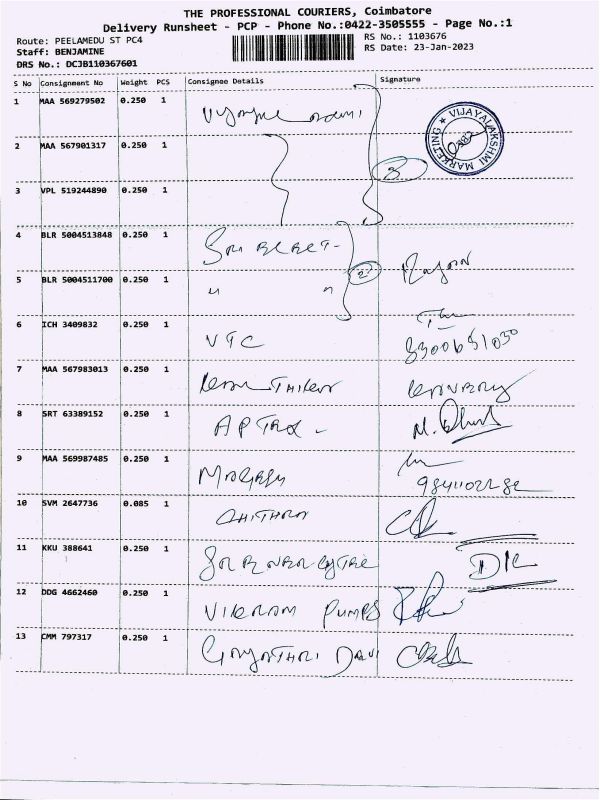 THE PROFESSIONAL COURIERS, Coimbatore
Delivery Runsheet - PCP - Phone No.:0422-3505555 - Page No.:1
Route: PEELAMEDU ST PC4
Staff: BENJAMINE
DRS No.: DCJB110367601
RS No.: 1103676
RS Date: 23-Jan-2023
S No Consignment No Weight PCS Consignee Details Signature
1 MAA 569279502 0.250 1
VIJAYALAKSHMI MARKETING
2 MAA 567901317 0.250 1
3
3 VPL 519244890 0.250 1
4 BLR 5004513848 0.250 1 Sri
5 BLR 5004511700 0.250 1 " " 2
6 ICH 3409832 0.250 1 VTC
7 MAA 567983013 0.250 1
8 SRT 63389152 0.250 1
9 MAA 569987485 0.250 1
10 SVM 2647736 0.085 1 CHITHRA
11 KKU 388641 0.250 1
12 DDG 4662460 0.250 1 VIKRAM PUMPS
13 CMM 797317 0.250 1 GAYATHRI DEVI